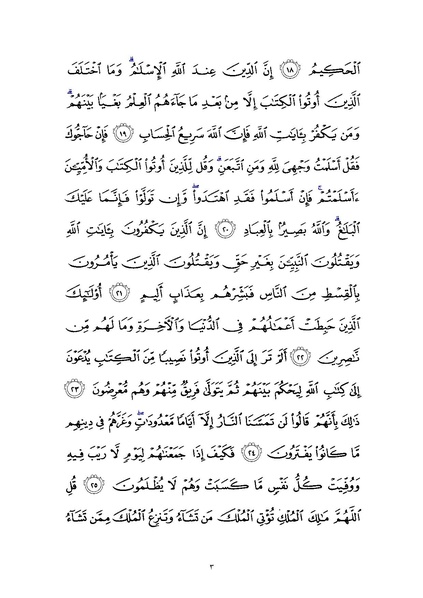 ٱلۡحَكِيمُ ١٨ إِنَّ ٱلدِّينَ عِندَ ٱللَّهِ ٱلۡإِسۡلَٰمُۗ وَمَا ٱخۡتَلَفَ
ٱلَّذِينَ أُوتُواْ ٱلۡكِتَٰبَ إِلَّا مِنۢ بَعۡدِ مَا جَآءَهُمُ ٱلۡعِلۡمُ بَغۡيَۢا بَيۡنَهُمۡۗ
وَمَن يَكۡفُرۡ بِـَٔايَٰتِ ٱللَّهِ فَإِنَّ ٱللَّهَ سَرِيعُ ٱلۡحِسَابِ ١٩ فَإِنۡ حَآجُّوكَ
فَقُلۡ أَسۡلَمۡتُ وَجۡهِيَ لِلَّهِ وَمَنِ ٱتَّبَعَنِۗ وَقُل لِّلَّذِينَ أُوتُواْ ٱلۡكِتَٰبَ وَٱلۡأُمِّيِّـۧنَ
ءَأَسۡلَمۡتُمۡۚ فَإِنۡ أَسۡلَمُواْ فَقَدِ ٱهۡتَدَواْۖ وَّإِن تَوَلَّوۡاْ فَإِنَّمَا عَلَيۡكَ
ٱلۡبَلَٰغُۗ وَٱللَّهُ بَصِيرُۢ بِٱلۡعِبَادِ ٢٠ إِنَّ ٱلَّذِينَ يَكۡفُرُونَ بِـَٔايَٰتِ ٱللَّهِ
وَيَقۡتُلُونَ ٱلنَّبِيِّـۧنَ بِغَيۡرِ حَقّٖ وَيَقۡتُلُونَ ٱلَّذِينَ يَأۡمُرُونَ
بِٱلۡقِسۡطِ مِنَ ٱلنَّاسِ فَبَشِّرۡهُم بِعَذَابٍ أَلِيمٍ ٢١ أُوْلَٰٓئِكَ
ٱلَّذِينَ حَبِطَتۡ أَعۡمَٰلُهُمۡ فِي ٱلدُّنۡيَا وَٱلۡأٓخِرَةِ وَمَا لَهُم مِّن
نَّٰصِرِينَ ٢٢ أَلَمۡ تَرَ إِلَى ٱلَّذِينَ أُوتُواْ نَصِيبٗا مِّنَ ٱلۡكِتَٰبِ يُدۡعَوۡنَ
إِلَىٰ كِتَٰبِ ٱللَّهِ لِيَحۡكُمَ بَيۡنَهُمۡ ثُمَّ يَتَوَلَّىٰ فَرِيقٞ مِّنۡهُمۡ وَهُم مُّعۡرِضُونَ ٢٣
ذَٰلِكَ بِأَنَّهُمۡ قَالُواْ لَن تَمَسَّنَا ٱلنَّارُ إِلَّآ أَيَّامٗا مَّعۡدُودَٰتٖۖ وَغَرَّهُمۡ فِي دِينِهِم
مَّا كَانُواْ يَفۡتَرُونَ ٢٤ فَكَيۡفَ إِذَا جَمَعۡنَٰهُمۡ لِيَوۡمٖ لَّا رَيۡبَ فِيهِ
وَوُفِّيَتۡ كُلُّ نَفۡسٖ مَّا كَسَبَتۡ وَهُمۡ لَا يُظۡلَمُونَ ٢٥ قُلِ
ٱللَّهُمَّ مَٰلِكَ ٱلۡمُلۡكِ تُؤۡتِي ٱلۡمُلۡكَ مَن تَشَآءُ وَتَنزِعُ ٱلۡمُلۡكَ مِمَّن تَشَآءُ
٣